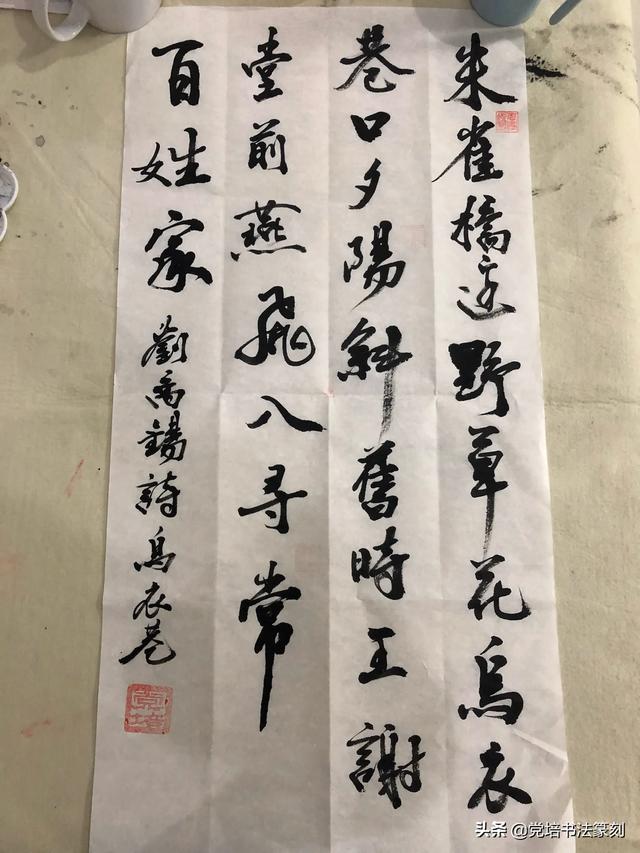 朱雀橋邊野草花烏衣
巷口夕陽斜舊時王謝
堂前燕飛入寻常
百姓家
劉禹錫詩烏衣巷
党培
头条 @党培书法篆刻